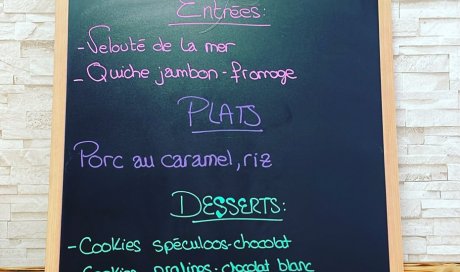 Entrées:
- Velouté de la mer
- Quiche jambon-fromage
PLATS
Porc au caramel, riz
DESSERTS:
- Cookies spéculoos-chocolat
- Cookies pralines-chocolat blanc